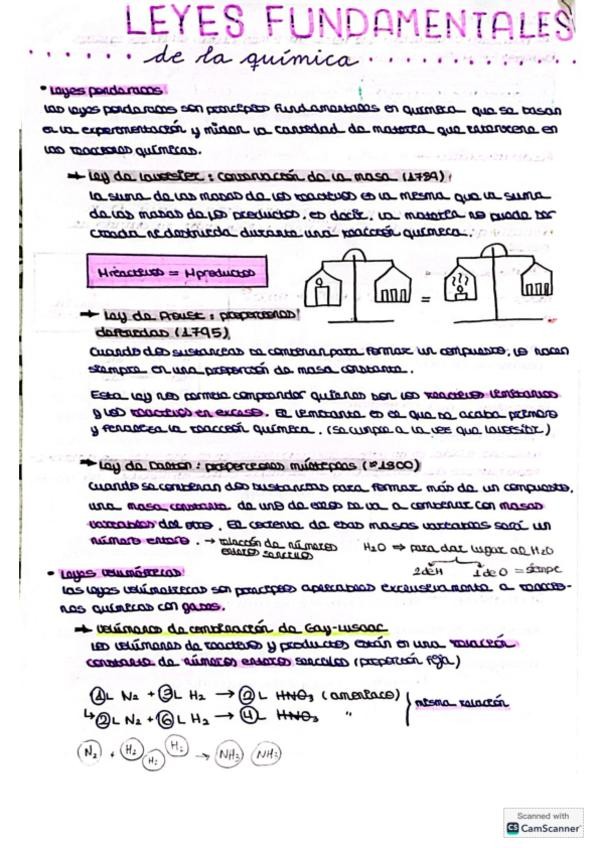 LEYES FUNDAMENTALES
de la química
• Leyes ponderales:
Las leyes ponderales son principios fundamentales en química que se basan
en la experimentación y miden la cantidad de materia que interviene en
las reacciones químicas.
→ Ley de Lavoisier: conservación de la masa (1789)
La suma de las masas de los reactivos es la misma que la suma
de las masas de los productos, es decir, la materia no puede ser
creada ni destruida durante una reacción química.
Mreactivos = Mproductos
=
→ Ley de Proust: proporciones
definidas (1795)
Cuando dos sustancias se combinan para formar un compuesto, lo hacen
siempre en una proporción de masa constante.
Esta ley nos permite comprender quienes son los reactivos limitantes
y los reactivos en exceso. El limitante es el que se acaba primero
y finaliza la reacción química. (se cumple a la vez que
→ Ley de Dalton: proporciones múltiples
Cuando se combinan dos sustancias para formar más de un compuesto,
una masa constante de uno de ellos se va a combinar con masas
variables del otro. El cociente de esas masas variables será un
número entero. → relación de números
enteros sencillos
H₂O ⇒ para dar lugar al H₂O
2 de H 1 de O =
• Leyes volumétricas:
Las leyes volumétricas son principios aplicables exclusivamente a reaccio-
nes químicas con gases.
→ Volúmenes de combinación de Gay-Lussac
Los volúmenes de reactivos y productos están en una relación
constante de números enteros sencillos (proporción fija)
1L N₂ + 3L H₂ → 2L HNO₃ (amoniaco)
↳ 2L N₂ + 6L H₂ → 4L HNO₃ "
misma relación
N₂ + H₂ H₂ H₂ → NH₃ NH₃
Scanned with
CS CamScanner